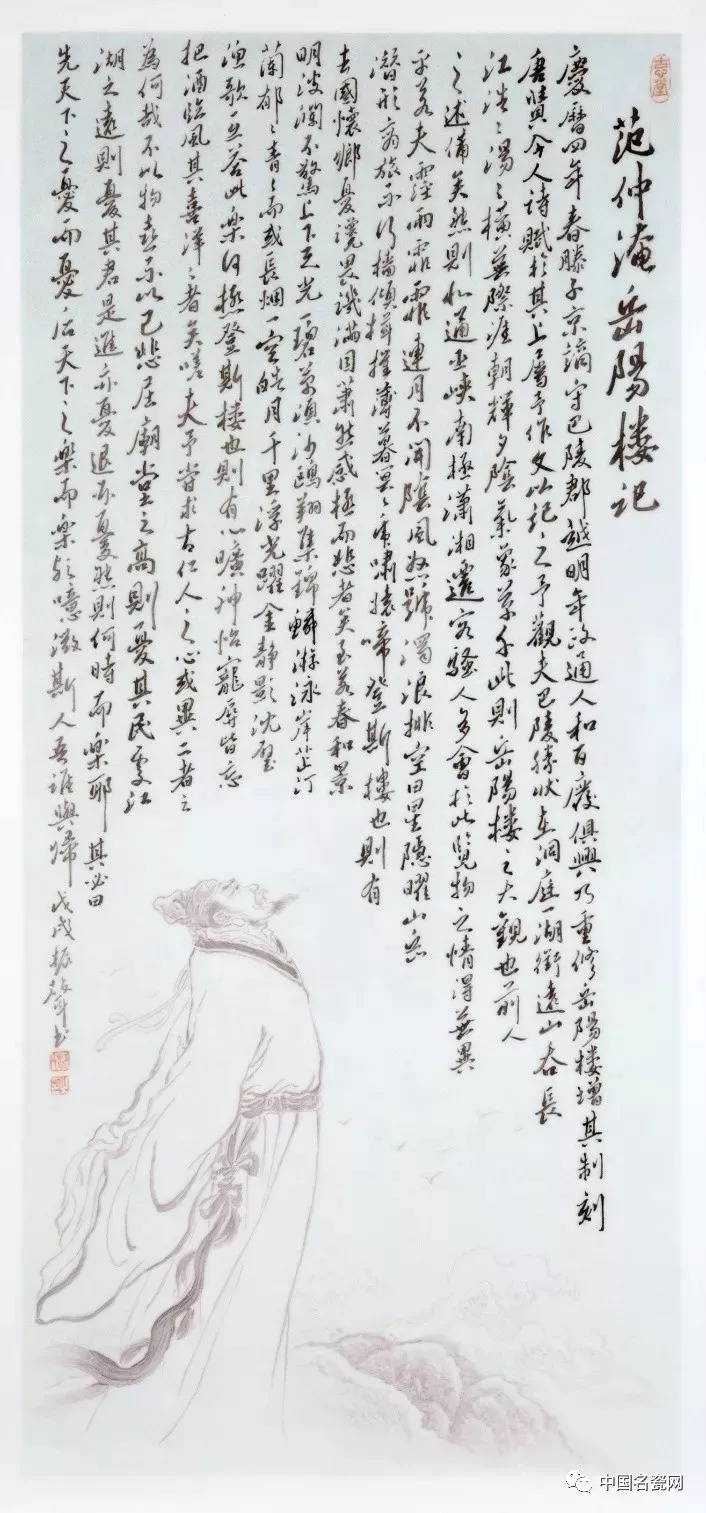 范仲淹岳陽楼记
慶曆四年春滕子京謫守巴陵郡越明年政通人和百廢俱興乃重修岳陽楼增其制刻
唐賢今人詩賦於其上屬予作文以記之予觀夫巴陵勝状在洞庭一湖銜遠山吞長
江浩〻湯〻橫無際涯朝輝夕陰氣象萬千此則岳陽楼之大觀也前人
之述備矣然則北通巫峽南極瀟湘遷客騷人多會於此覽物之情得無異
乎若夫霪雨霏霏連月不開陰風怒號濁浪排空日星隱曜山岳
潛形商旅不行檣傾楫摧薄暮冥〻虎嘯猿啼登斯楼也則有
去國懷鄉憂讒畏譏滿目蕭然感極而悲者矣至若春和景
明波瀾不驚上下天光一碧萬頃沙鷗翔集錦鱗游泳岸芷汀
蘭郁〻青〻而或長烟一空皓月千里浮光躍金静影沈璧
漁歌互答此樂何極登斯楼也則有心曠神怡寵辱皆忘
把酒臨風其喜洋〻者矣嗟夫予嘗求古仁人之心或異二者之
為何哉不以物喜不以己悲居廟堂之高則憂其民處江
湖之遠則憂其君是進亦憂退亦憂然則何時而樂耶其必曰
先天下之憂而憂后天下之樂而樂歟噫微斯人吾誰與歸戊戌振聲书
中国名瓷网